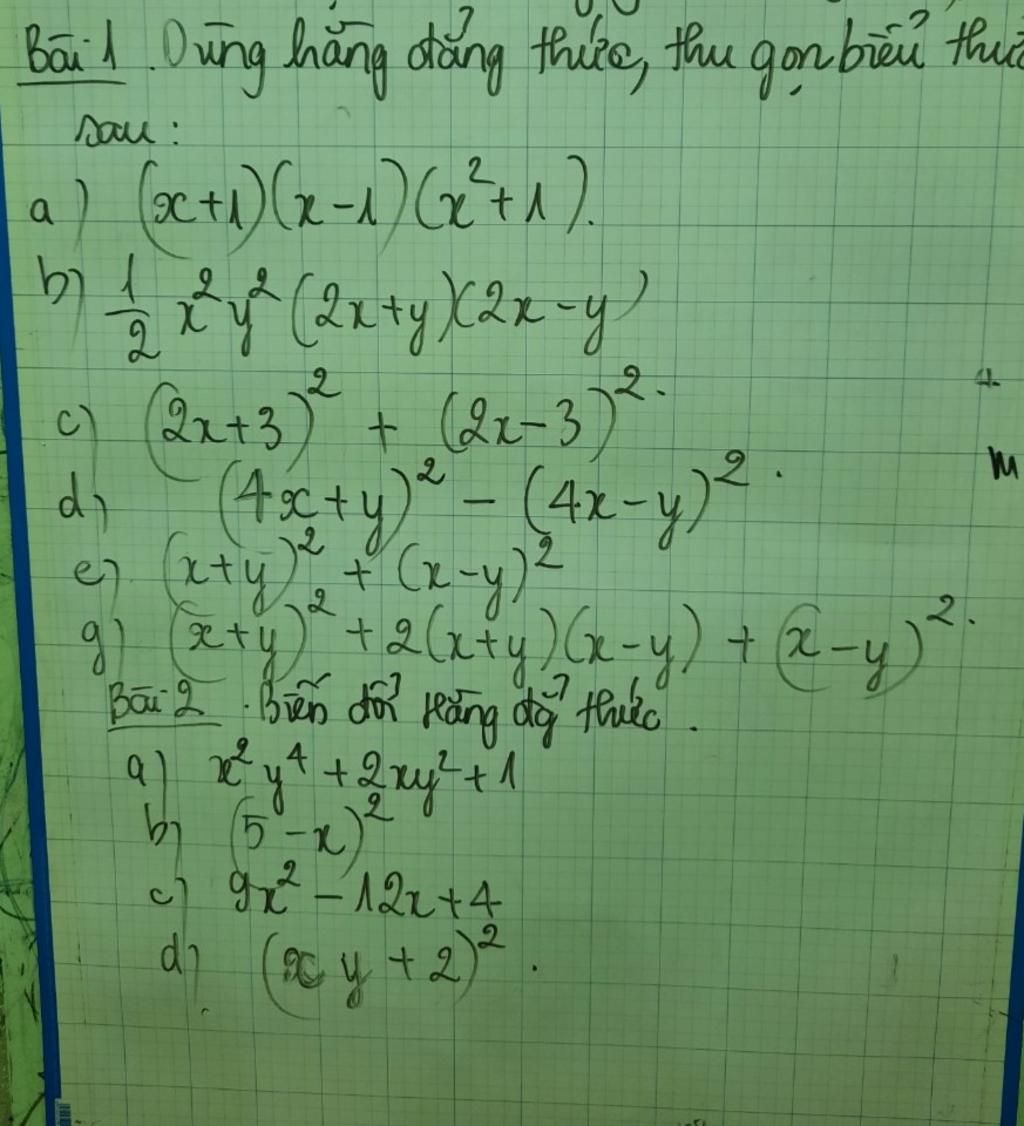 Bài 1. Dùng hằng đẳng thức, thu gọn biểu thức
sau:
a) (x+1)(x-1)(x²+1).
b) 1/2 x²y²(2x+y)(2x-y)
c) (2x+3)² + (2x-3)².
d) (4x+y)² - (4x-y)².
e) (x+y)² + (x-y)²
g) (x+y)² + 2(x+y)(x-y) + (x-y)².
Bài 2. Biến đổi hằng đẳ thức.
a) x²y⁴ + 2xy² + 1
b) (5-x)²
c) 9x² - 12x + 4
d) (xy + 2)².